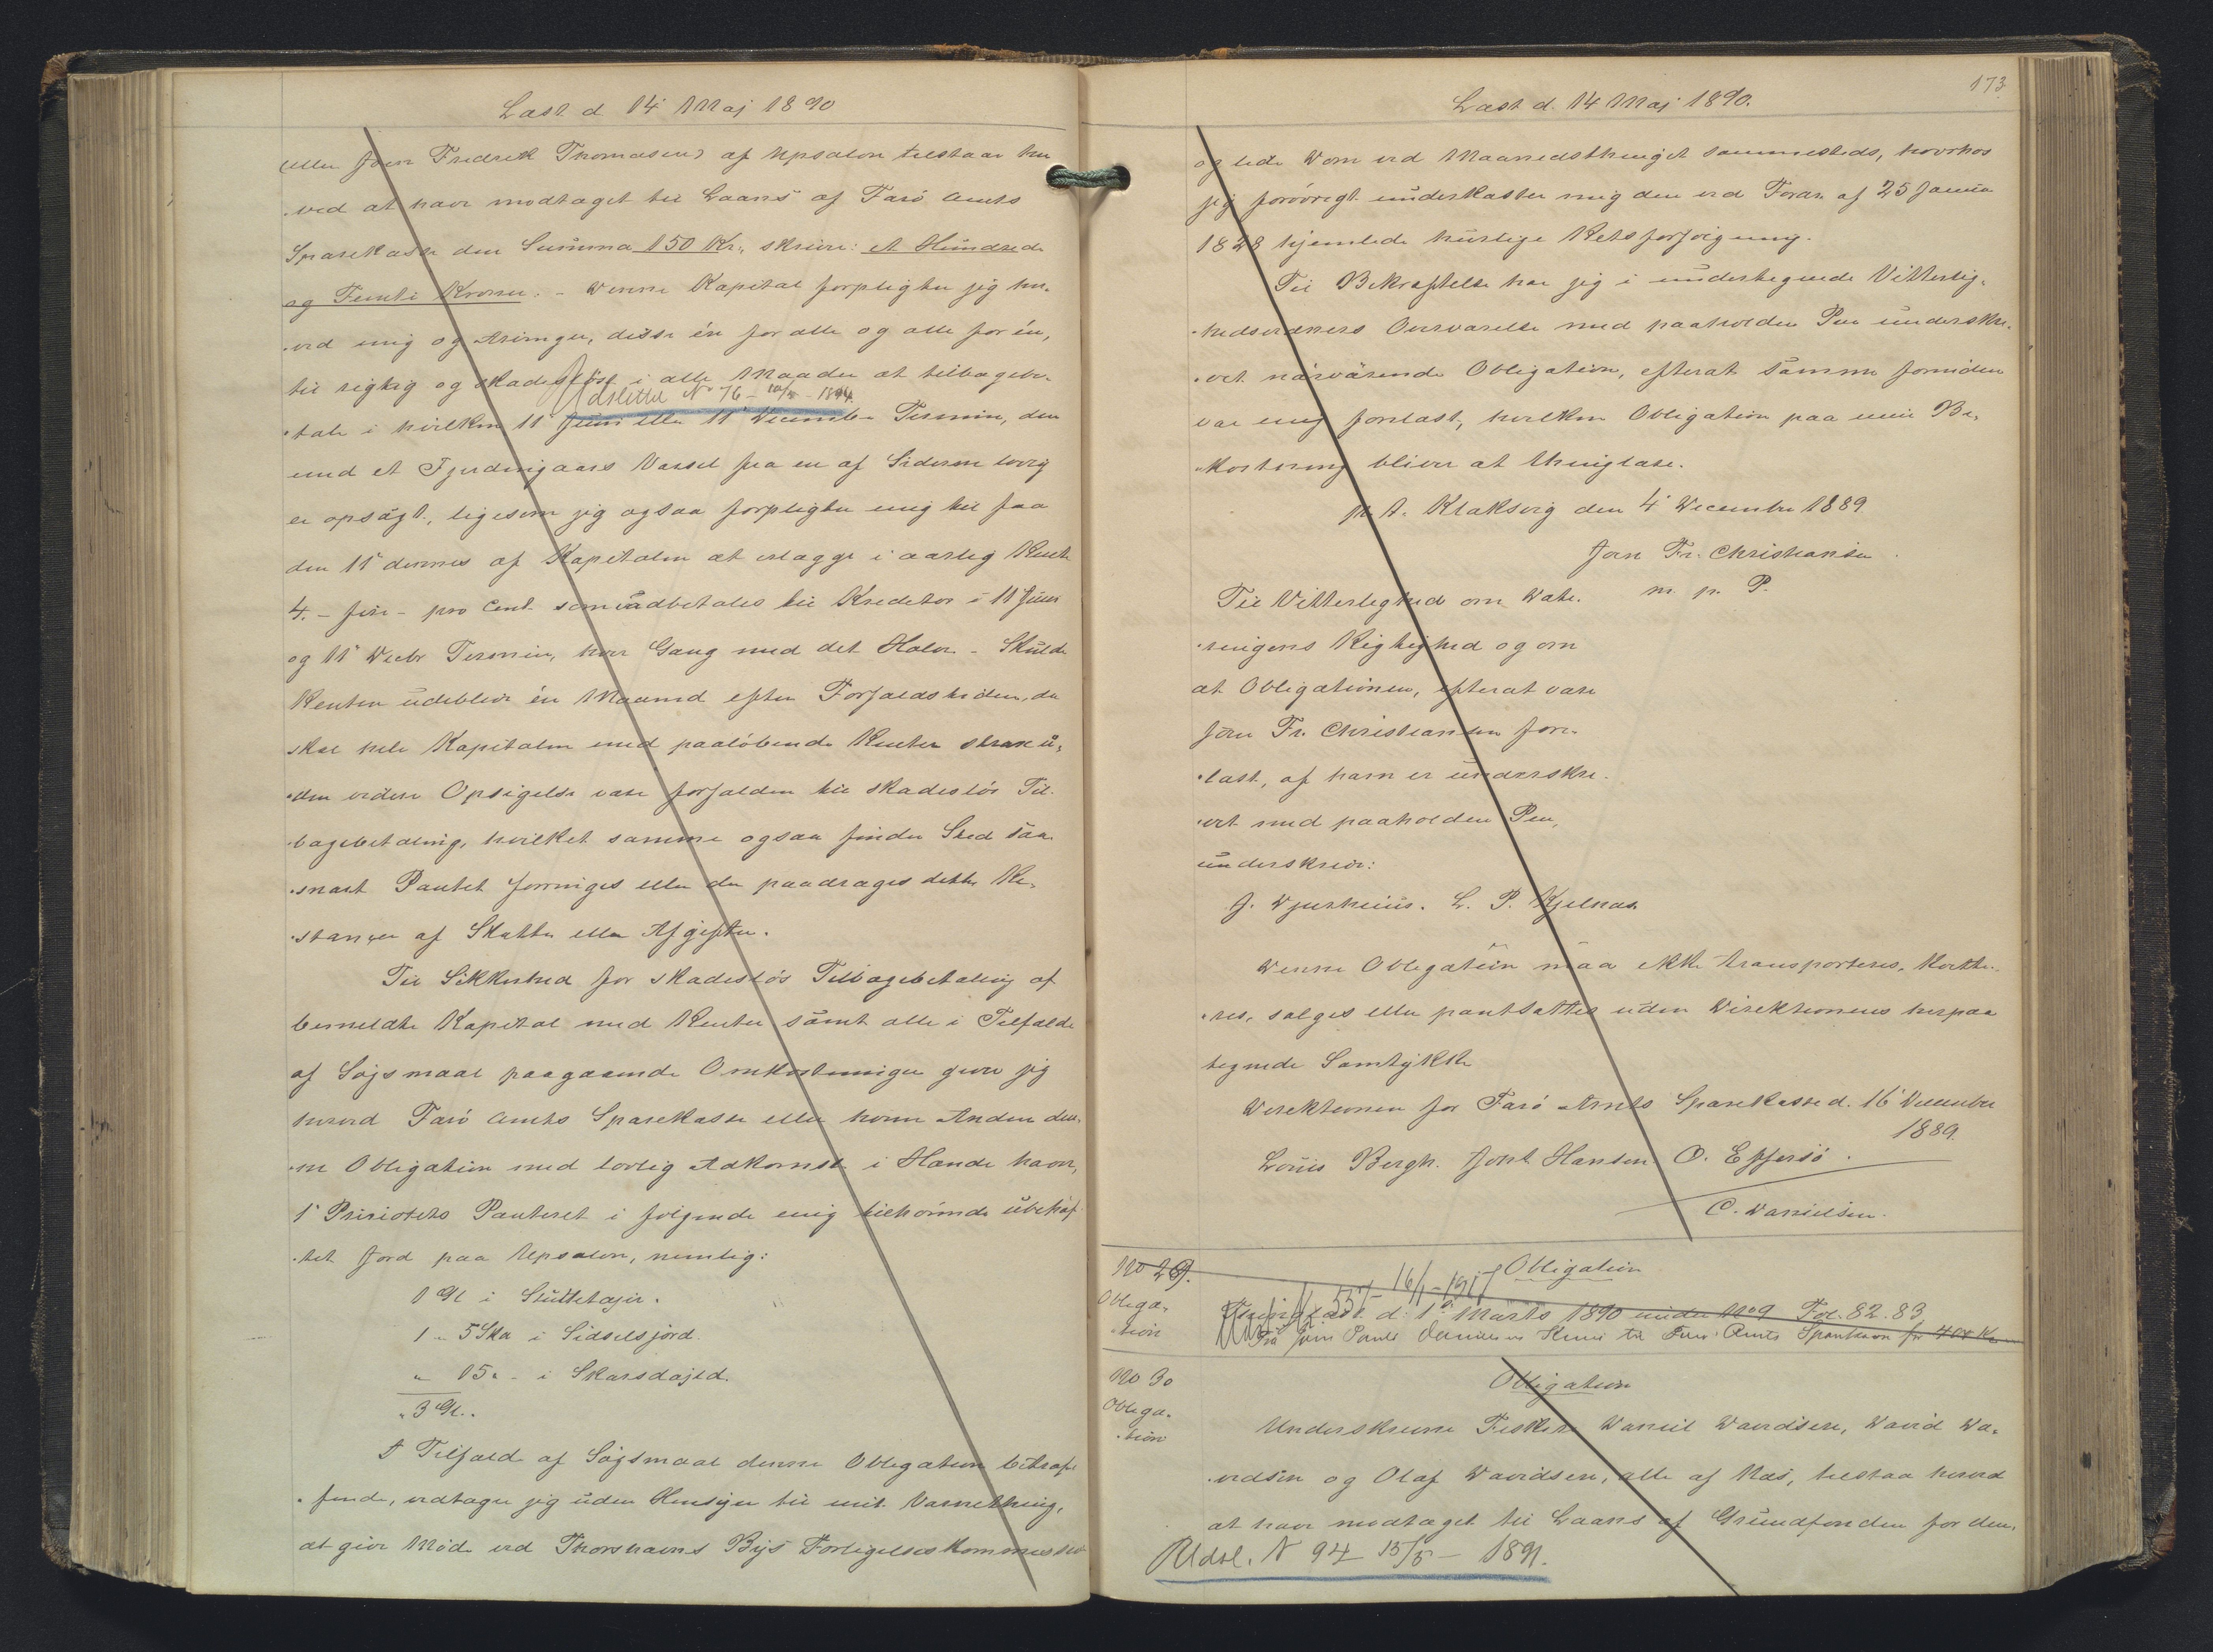 Læst d 14 Maj 1890
(eller Joen Fredrik Thomasen) af Upsalon tilstaar her
ved at have modtaget til Laans af Farö Amts
Sparekasse den Summa 150 Kr., skriver: et Hundrede
og Femti Kroner. - Denne Kapital forpligter jeg her,
ved mig og Arvinger, disse én for alle og alle for én,
til rigtig og skadesløst i alle Maader at tilbagebe-
Udslettet No 76 - 1894.
tale i hvilken 11 Juni eller 11 December Termin, den
med et Fjerdingaars Varsel fra en af Siderne lovlig
er opsagt, ligesom jeg ogsaa forpligter mig til fra
den 11 dennes af Kapitalen at erlægge i aarlig Rente
4. - fire - pro Cent. som udbetales til Kreditor i 11 Juni
og 11 Decbr Termin, hver Gang med det Halve. - Skulde
Renten udeblive én Maaned efter Forfaldstiden, da
skal hele Kapitalen med paaløbende Renter strax u-
den videre Opsigelse være forfalden til skadesløs Til-
bagebetaling, hvilket samme ogsaa finder Sted saa
snart Pantet forringes eller der paadrages dette Re-
stancer af Skatter eller Afgifter.
Til Sikkerhed for skadesløs Tilbagebetaling af
bemeldte Kapital med Renter samt alle i Tilfælde
af Søgsmaal paagaaende Omkostninger giver jeg
herved Farö Amts Sparekasse eller hvem Anden den-
ne Obligation med lovlig Adkomst i Hænde haver,
1 Prioritets Panteret i følgende mig tilhørende ubehæf-
tet Jord paa Upsalon, nemlig:
1 Gl i
1 " 5 Ska i Sidselsjord
" 15 " - i Skarsdajld.
" 3 Gl. "
I Tilfæld af Søgsmaal denne Obligation betræf-
fende, vedtager jeg uden Hensyn til mit Værnething,
at give Møde ved Thorshavns Byes Forligelseskommission
173
Læst d. 14 Maj 1890.
og lide Dom ved Maanedsthinget sammesteds, hvorhos
jeg forøvrigt underkaster mig den ved Fordn. af 25 Janua
1828 hjemlede hurtige Retsforfølgning.
Til Bekræftelse har jeg i undertegnede Vitterlig-
hedsvidners Overværelse med paaholden Pen underskre-
vet nærværende Obligation, efterat samme forinden
var mig forelæst, hvilken Obligation paa min Be-
kostning bliver at thinglæse.
p. t. Klaksvig den 4 December 1889
Joen Fr. Christiansen
m. p. P.
Til Vitterlighed om Date-
ringens Rigtighed og om
at Obligationen, efterat være
Joen Fr. Christiansen fore-
læst, af ham er underskre-
vet med paaholden Pen,
underskriver:
J. Djurhuus. L. P. Kjelnæs
Denne Obligation maa ikke transporteres, kvitte-
res, sælges eller pantsættes uden Direktionens herpaa
tegnede Samtykke
Direktionen for Farö Amts Sparekasse d. 16 December
1889.
Louis Bergh. Joh Hansen O. Effersö.
C. Danielsen.
No 29.
Obliga-
tion
Obligation
16/1 - 1917
Thinglæst d. 1 Marts 1890 under No 9 Fol. 82. 83
Fra til Farö Amts Sparekasse for 400 Kr
No 30
Obliga-
tion
Obligation
Underskrevne Fiskere Daniel Davidsen, David Da-
vidsen og Olaf Davidsen, alle af Næs, tilstaa herved
at have modtaget til Laans af Grundfonden for den,
Udsl. N 94 - 15/5 - 1891.